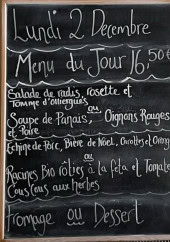 Lundi 2 Decembre
Menu du Jour 16,50€
Salade de radis, rosette et
Tomme d'Auvergnes
ou
Soupe de Panais, Oignons Rouges
et Poire
Echine de Porc, Bière de Noël, Carottes et Orange
ou
Racines Bio rôties à la feta et Tomate
Cous Cous aux herbes
Fromage ou Dessert